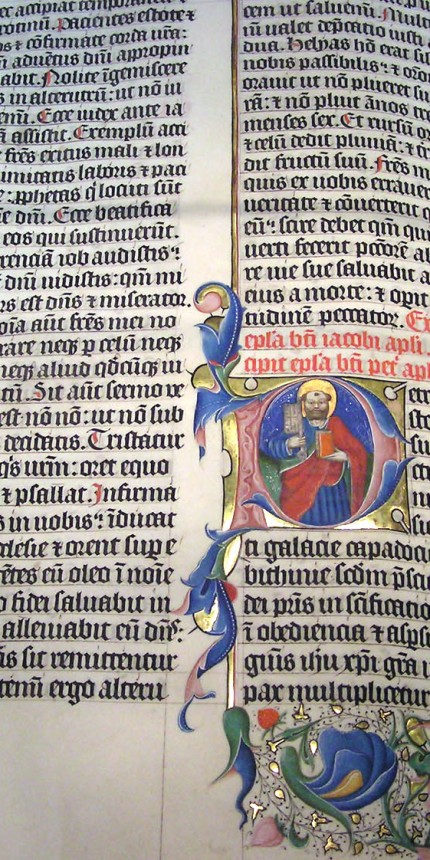 accipiat temporaneu
rotinū. Pacientes estote ⁊
s ⁊ cōfirmate corda vr̄a:
m aduentus dn̄i appropin
abit. Nolite īgemiscere
s in alterutrū: ut nō iu
emī. Ecce iudex ante ia
ā assistit. Exemplū acci
frēs exitus mali ⁊ lon
imitatis laboris ⁊ paci
e: ꝓphetas q̇ locuti sūt
e dn̄i. Ecce beatifica
eos qui sustinuerūt.
renciā iob audistis:
dn̄i uidistis: qm̄ mi
rs est dn̄s ⁊ miserator.
oīa aūt frēs mei no
rare neqꝫ ꝑ celū neqꝫ
neqꝫ aliud qd̄cūqꝫ iu
tū. Sit aūt sermo ve
est nō nō: ut nō sub
decidatis. Tristatur
q̇s vrm̄: oret equo
⁊ psallat. Infirma
s in uobis: īducat
clesie ⁊ orent suꝑ e
ētes eū oleo ī noīe
o fidei saluabit in
alleuiabit eū dn̄s:
is sit remittentur
temī ergo alteru
cem ut saluemī. Mult
im ualet dep̄catio ius
dua. Helyas hō erat si
nobis passibilis: ⁊ oro
orauit ut nō plueret su
rā: ⁊ nō pluit ānos
menses sex. Et rursū or
⁊ celū dedit pluuiā: ⁊
dit fructū suū. Frēs m
quis ex uobis errauer
ueritate ⁊ cōuerterit q
eū: scire debet qm̄ qui
uerti fecerit pctōrē ab
re uie sue saluabit a
eius a morte: ⁊ opit
tudinē peccator. Ex
ep̄la bt̄i iacobi apl̄i.
cipit ep̄la bt̄i pet apl
P etr
ti galacie capadoci
bithinie scd̄m p̄sci
dei pr̄is in sc̄ificatio
ī obediencia ⁊ asp̄s
guīs ih̄u xp̄i gr̄a
pax multiplicetur